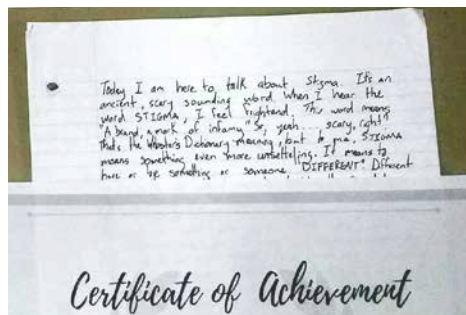 Today I am here to talk about Stigma. It's an
ancient, scary sounding word. When I hear the
word STIGMA, I feel frightend. This word means
"A brand, a mark of infamy." So, yeah... scary, right?
That's the Webster's Dictionary meaning, but to me, STIGMA
means something even more unsettling. It means to
have or be something or someone "DIFFERENT" Different
Certificate of Achievement